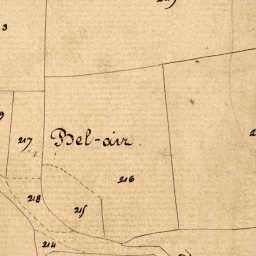 3
217
Bel-air.
216
218
215
214